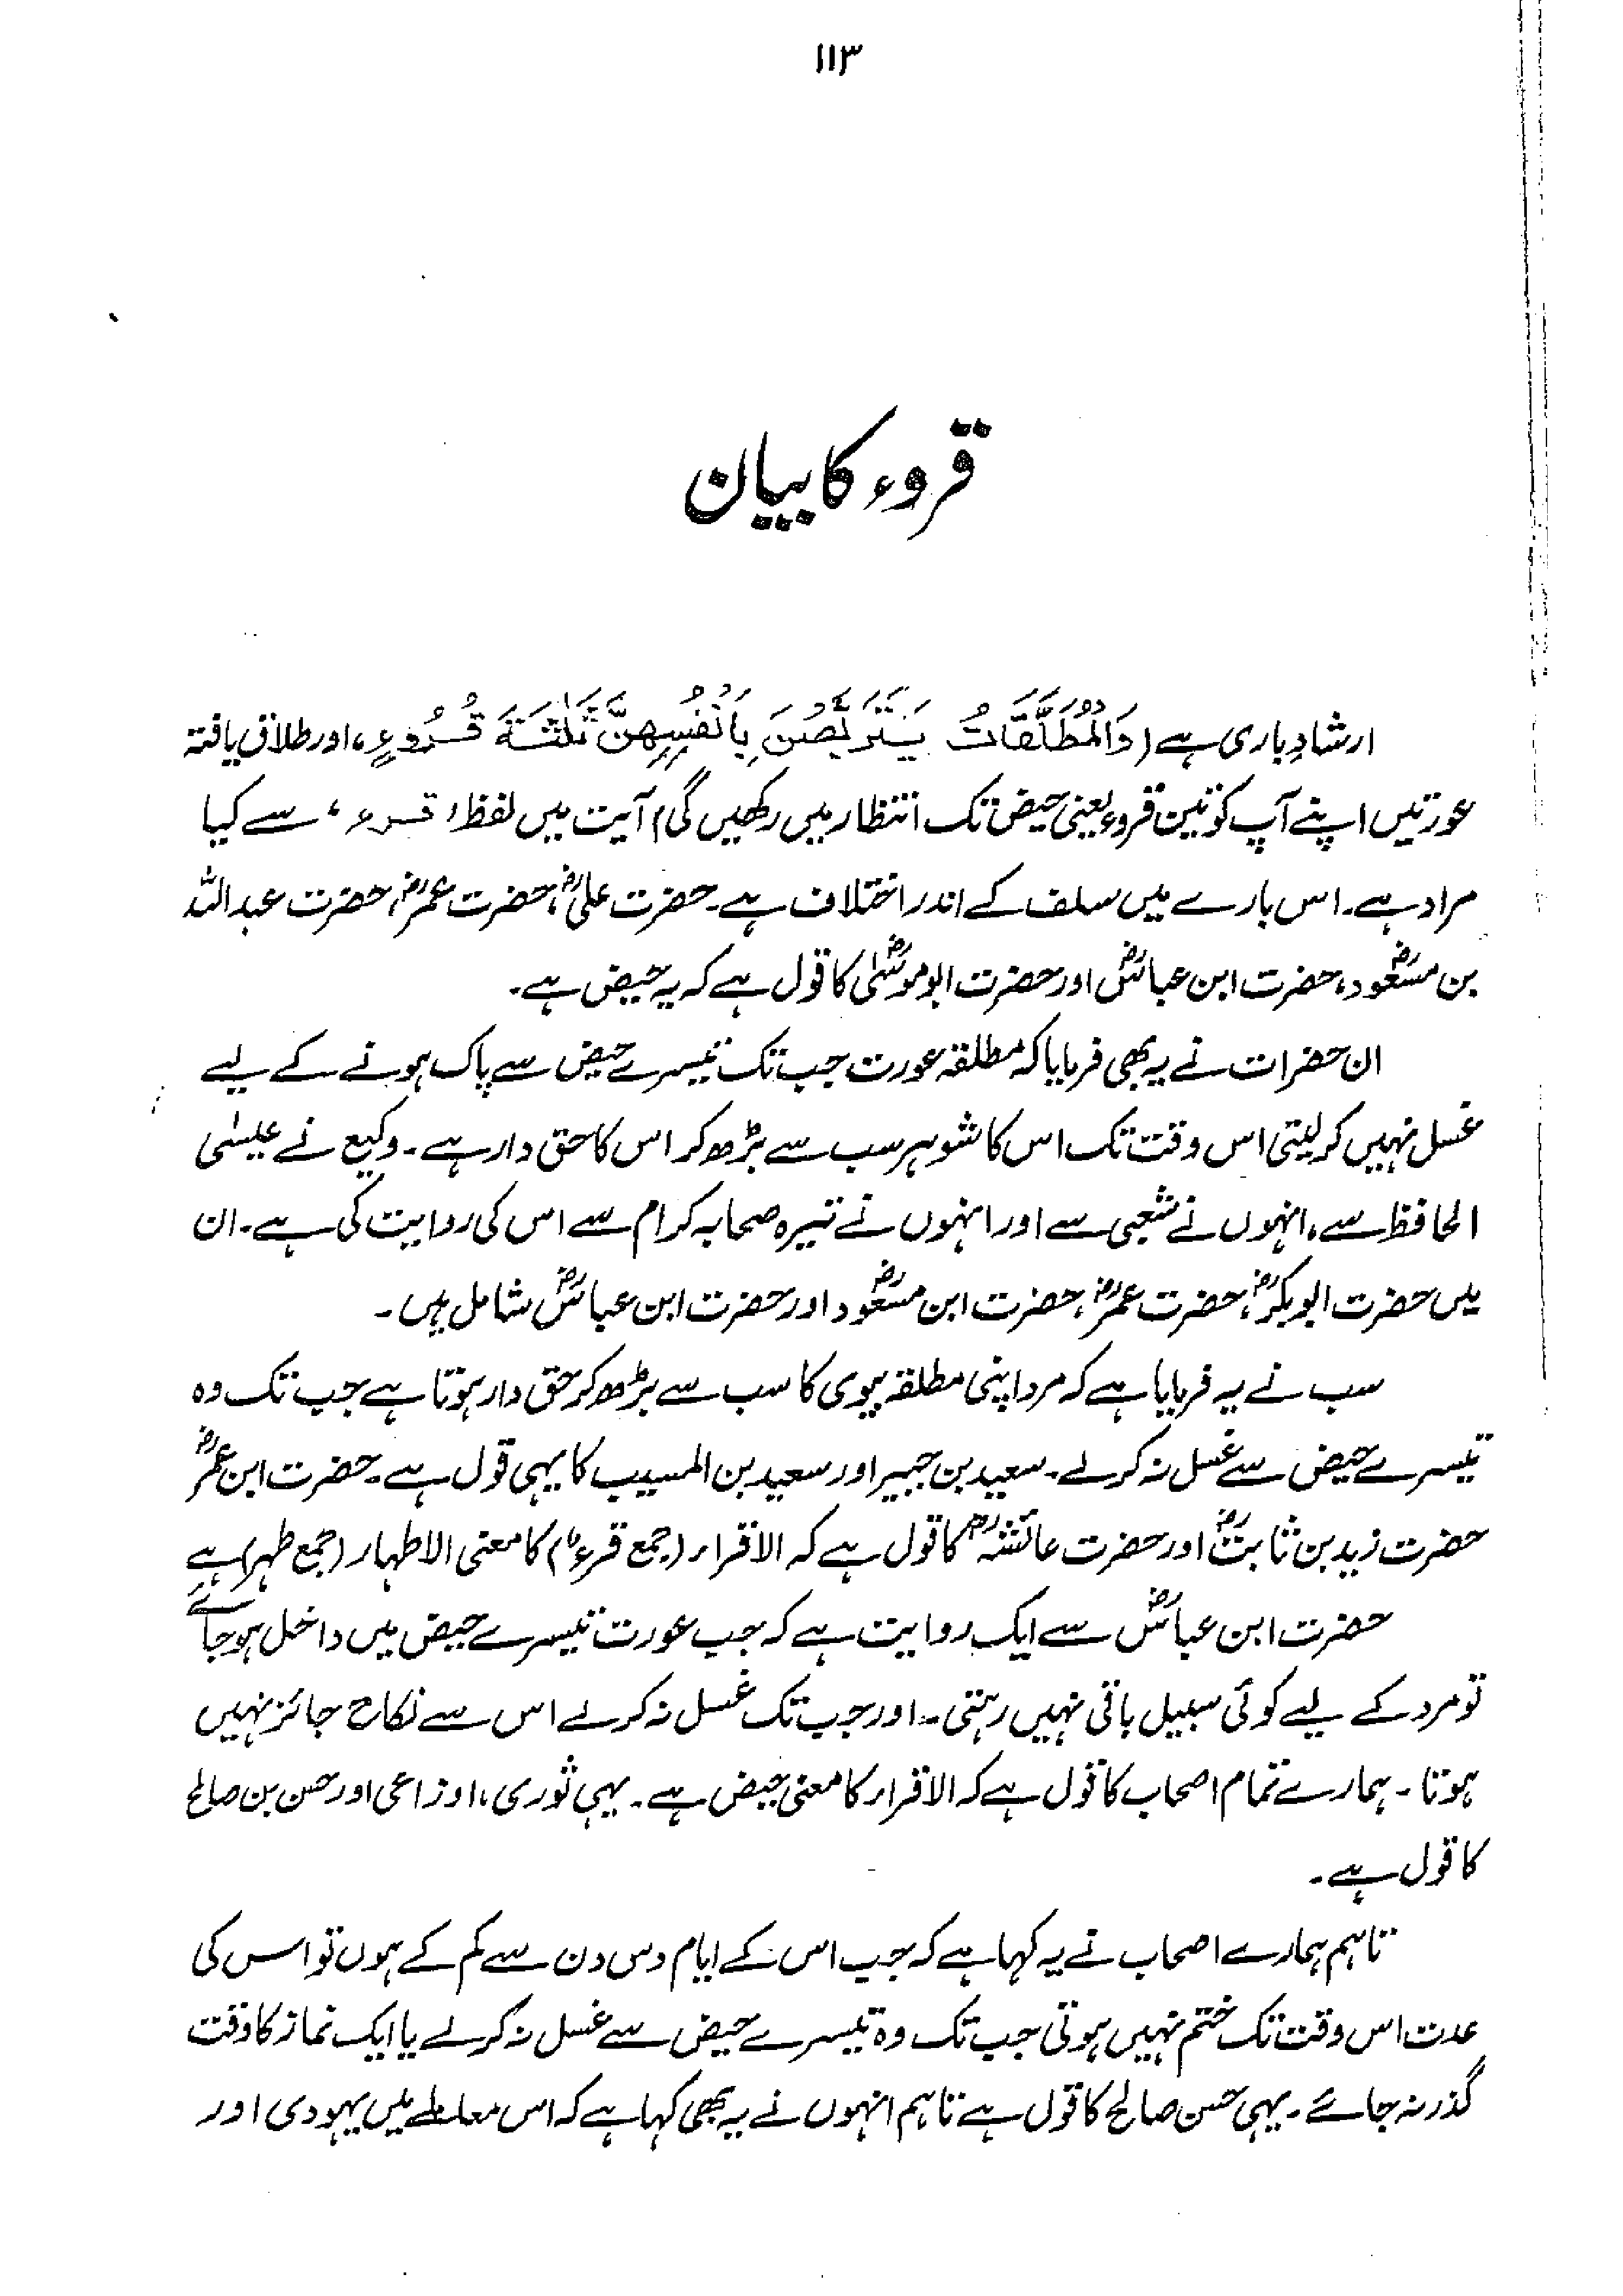 ۱۱۳
قروء کا بیان
ارشادِ باری ہے (وَالْمُطَلَّقَاتُ يَتَرَبَّصْنَ بِاَنْفُسِهِنَّ ثَلٰثَةَ قُرُوءٍ، اور طلاق یافتہ
عورتیں اپنے آپ کو تین قروء یعنی حیض تک انتظار میں رکھیں گی) آیت میں لفظ 'قرء' سے کیا
مراد ہے۔ اس بارے میں سلف کے اندر اختلاف ہے۔ حضرت علیؓ، حضرت عمرؓ، حضرت عبداللہ
بن مسعودؓ، حضرت ابن عباسؓ اور حضرت ابوموسٰیؓ کا قول ہے کہ یہ حیض ہے۔
ان حضرات نے یہ بھی فرمایا کہ مطلقہ عورت جب تک تیسرے حیض سے پاک ہونے کے لیے
غسل نہیں کر لیتی اس وقت تک اس کا شوہر سب سے بڑھ کر اس کا حق دار ہے۔ وکیع نے عیسٰی
الحافظ سے، انہوں نے شعبی سے اور انہوں نے تیرہ صحابہ کرام سے اس کی روایت کی ہے۔ ان
میں حضرت ابوبکرؓ، حضرت عمرؓ، حضرت ابن مسعودؓ اور حضرت ابن عباسؓ شامل ہیں۔
سب نے یہ فرمایا ہے کہ مرد اپنی مطلقہ بیوی کا سب سے بڑھ کر حق دار ہوتا ہے جب تک وہ
تیسرے حیض سے غسل نہ کر لے۔ سعید بن جبیر اور سعید بن المسیب کا یہی قول ہے۔ حضرت ابن عمرؓ
حضرت زید بن ثابتؓ اور حضرت عائشہؓ کا قول ہے کہ الاقراء (جمع قرء) کا معنی الاطہار (جمع طہر) ہے
حضرت ابن عباسؓ سے ایک روایت ہے کہ جب عورت تیسرے حیض میں داخل ہو جائے
تو مرد کے لیے کوئی سبیل باقی نہیں رہتی۔ اور جب تک غسل نہ کر لے اس سے نکاح جائز نہیں
ہوتا۔ ہمارے تمام اصحاب کا قول ہے کہ الاقراء کا معنی حیض ہے۔ یہی ثوری، اوزاعی اور حسن بن صالح
کا قول ہے۔
تاہم ہمارے اصحاب نے یہ کہا ہے کہ جب اس کے ایام دس دن سے کم کے ہوں تو اس کی
عدت اس وقت تک ختم نہیں ہوتی جب تک وہ تیسرے حیض سے غسل نہ کر لے یا ایک نماز کا وقت
گذر نہ جائے۔ یہی حسن صالح کا قول ہے تاہم انہوں نے یہ بھی کہا ہے کہ اس معاملے میں یہودی اور